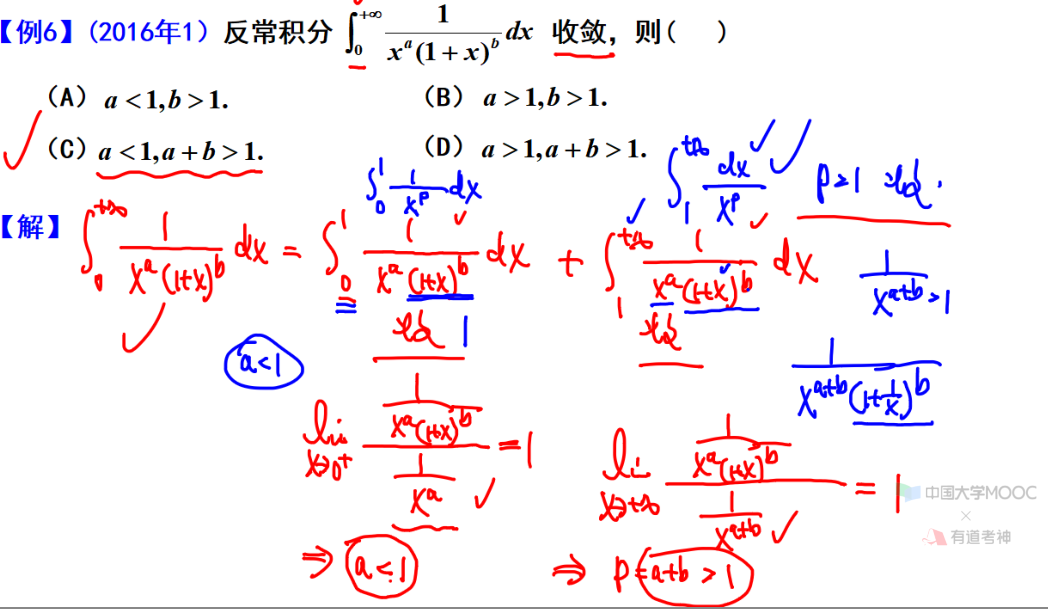 【例6】(2016年1) 反常积分 ∫₀^{+∞} 1/(x^a(1+x)^b) dx 收敛，则( )
(A) a<1,b>1.
(B) a>1,b>1.
(C) a<1,a+b>1.
(D) a>1,a+b>1.
∫₀¹ 1/x^p dx
∫₁^{+∞} dx/x^p
p>1 收敛.
【解】 ∫₀^{+∞} 1/(x^a(1+x)^b) dx = ∫₀¹ 1/(x^a(1+x)^b) dx + ∫₁^{+∞} 1/(x^a(1+x)^b) dx
1/x^{a+b} >1
收敛 1
收敛
a<1
1/(x^{a+b}(1+1/x)^b)
lim x→0⁺ (1/(x^a(1+x)^b))/(1/x^a) = 1
lim x→+∞ (1/(x^a(1+x)^b))/(1/x^{a+b}) = 1
⇒ a<1
⇒ p=a+b>1
中国大学MOOC
×
有道考神